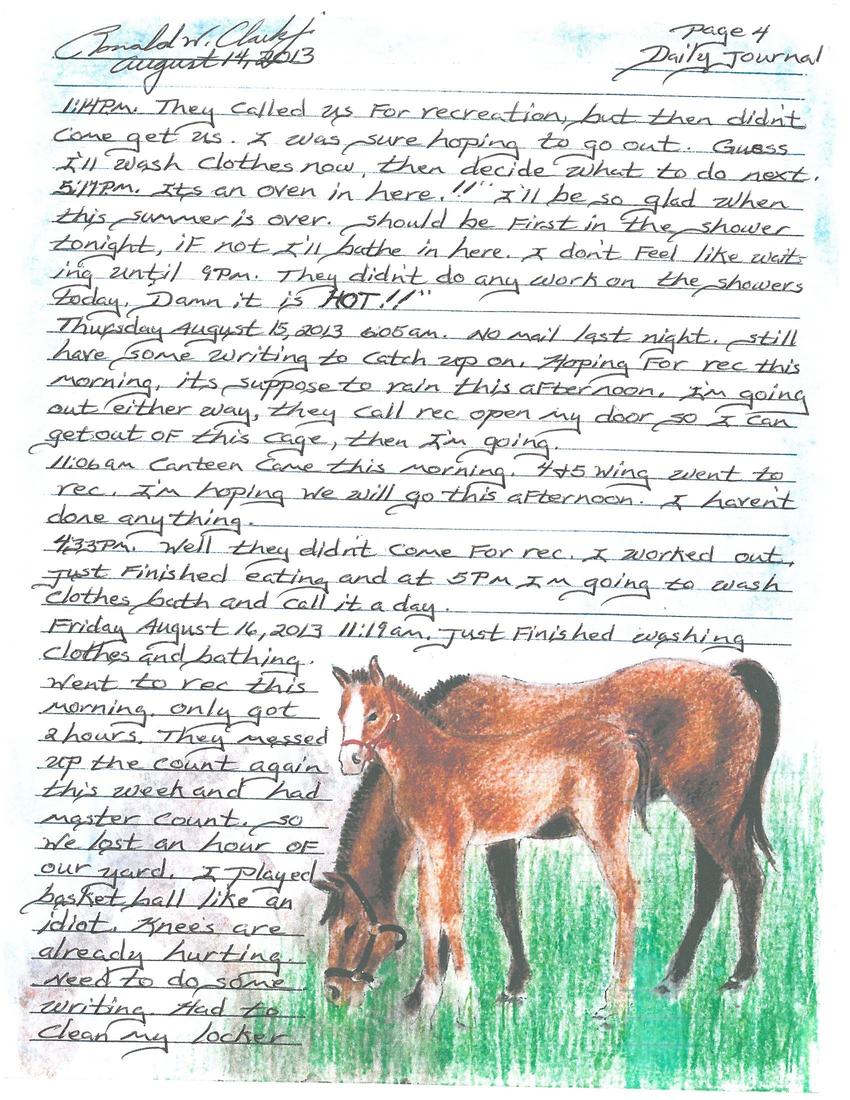 Ronald W. Clark Jr
August 14, 2013
Page 4
Daily Journal
1:14PM. They called us for recreation, but then didn't
come get us. I was sure hoping to go out. Guess
I'll wash clothes now, then decide what to do next.
5:17PM. Its an oven in here.!!" I'll be so glad when
this summer is over. Should be first in the shower
tonight, if not I'll bathe in here. I don't feel like wait-
ing until 9PM. They didn't do any work on the showers
today. Damn it is "HOT!!"
Thursday August 15, 2013 6:05am. No mail last night. Still
have some writing to catch up on. Hoping for rec this
morning, its suppose to rain this afternoon. I'm going
out either way, they call rec open my door so I can
get out of this cage, then I'm going.
11:06am Canteen came this morning. 4&5 wing went to
rec. I'm hoping we will go this afternoon. I haven't
done anything.
4:33PM. Well they didn't come for rec. I worked out,
just finished eating and at 5PM I'm going to wash
clothes bath and call it a day.
Friday August 16, 2013 11:19am. Just finished washing
clothes and bathing.
Went to rec this
morning. only got
2 hours. They messed
up the count again
this week and had
master count. so
we lost an hour of
our yard. I played
basket ball like an
idiot. Knees are
already hurting.
Need to do some
writing. Had to
clean my locker